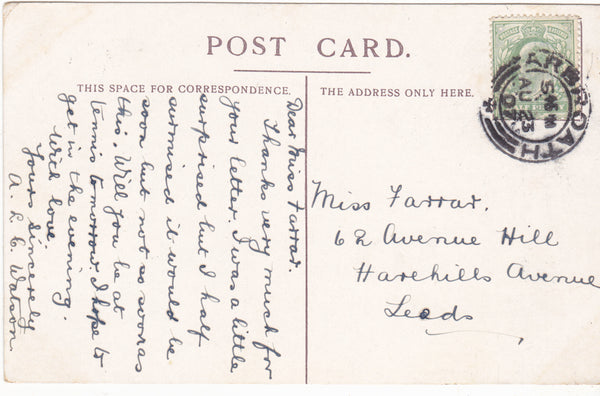 POST CARD.
THIS SPACE FOR CORRESPONDENCE.
THE ADDRESS ONLY HERE.
Dear Miss Farrar.
Thanks very much for
your letter. I was a little
surprised but I half
surmised it would be
soon but not as soon as
this. Will you be at
tennis tomorrow I hope to
get in the evening.
With love.
Yours Sincerely
A. L. C. Watson
Miss Farrar.
62 Avenue Hill
Harehills Avenue
Leeds
ARBROATH
AU 23
07